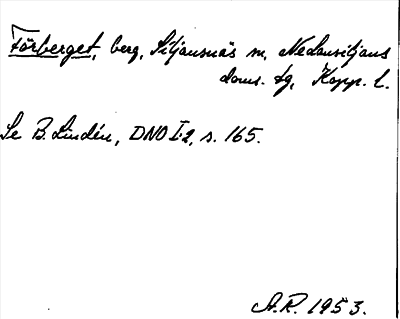 Förberget, berg, Siljansnäs sn, Nedansiljans
doms. tg, Kopp. l.
Se B. Lindén, DNO I:2, s. 165.
A.R. 1953.